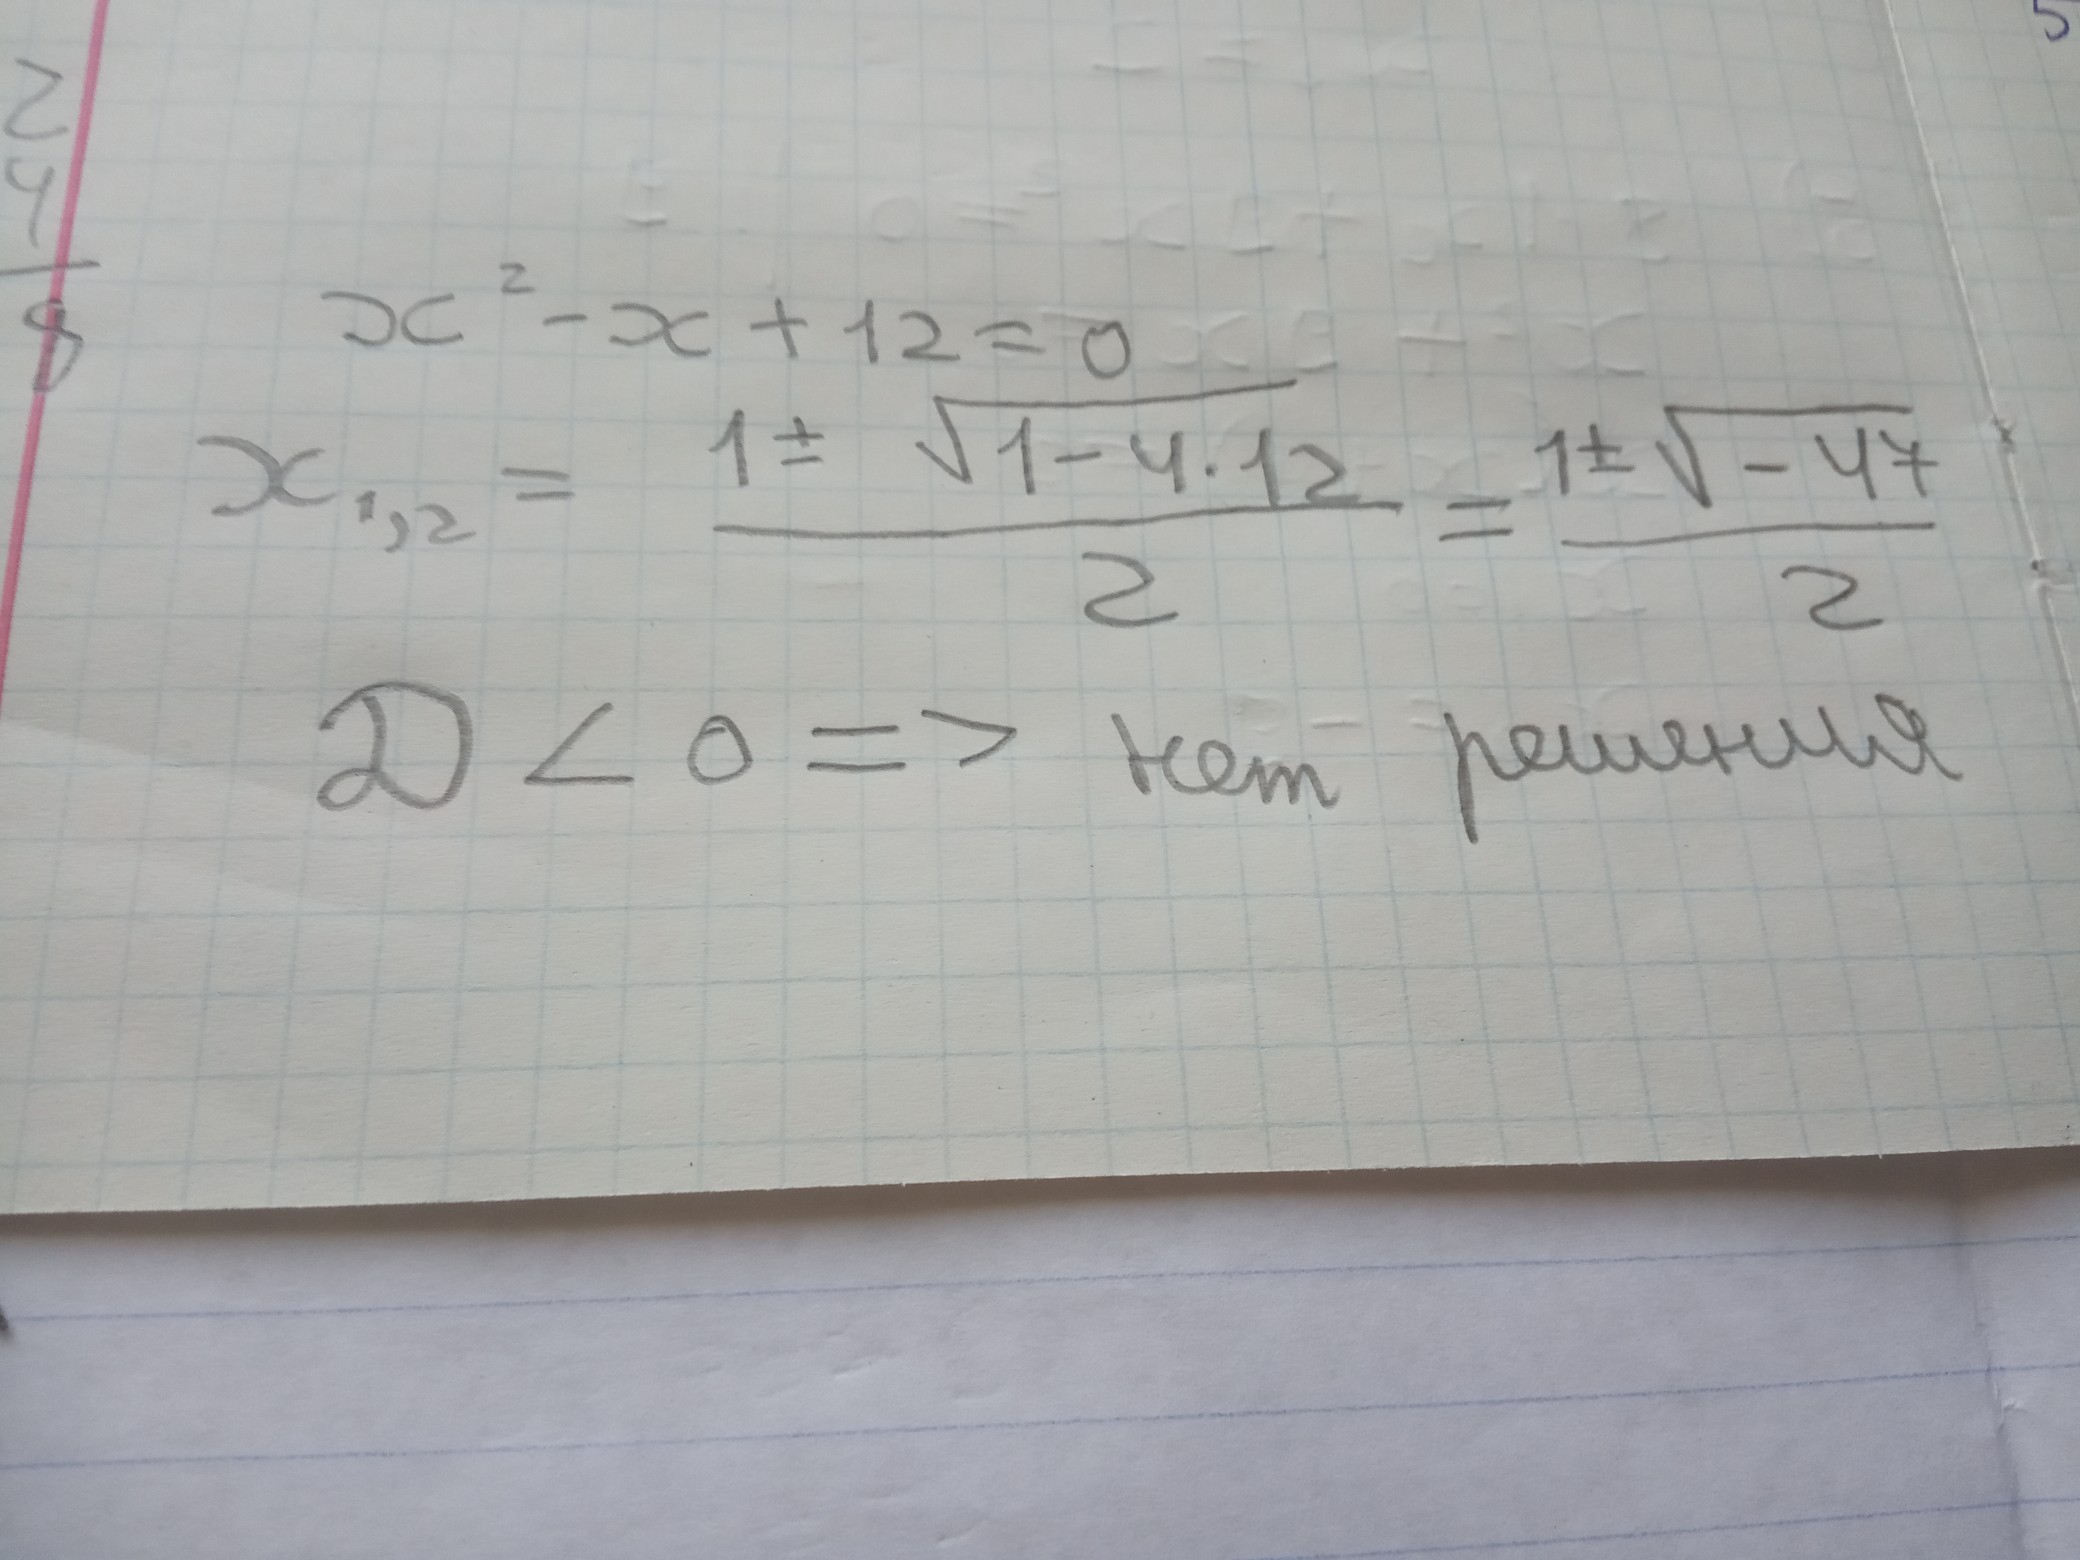 5
2
4
8
x² - x + 12 = 0
x₁,₂ = (1 ± √(1 - 4 · 12))/2 = (1 ± √(-47))/2
D < 0 => нет решения